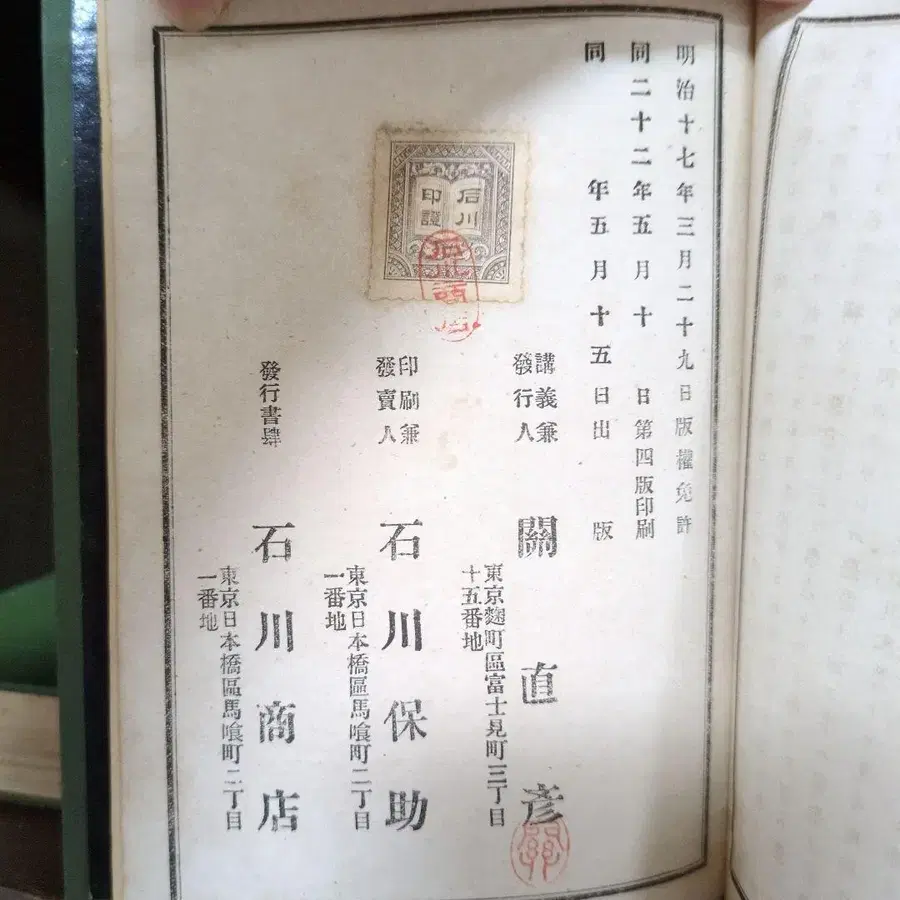 明治十七年三月二十九日版權免許
同二十二年五月十日第四版印刷
同年五月十五日出版
石川
印證
講義兼
發行人
關直彥
東京麴町區富士見町三丁目
十五番地
印刷兼
發賣人
石川保助
東京日本橋區馬喰町二丁目
一番地
發行書肆
石川商店
東京日本橋區馬喰町二丁目
一番地